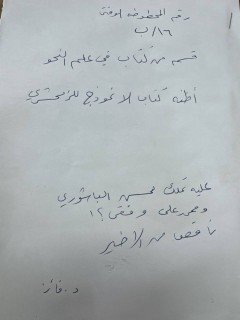 رقم المخطوط الوقتي
١٦/ب
قسم من كتاب في علم النحو
أظنه كتاب الانموذج للزمخشري
عليه تملك محسن الباشوري
ومحمد علي وفقي ؟!
ناقص من الاخير
د. فائز